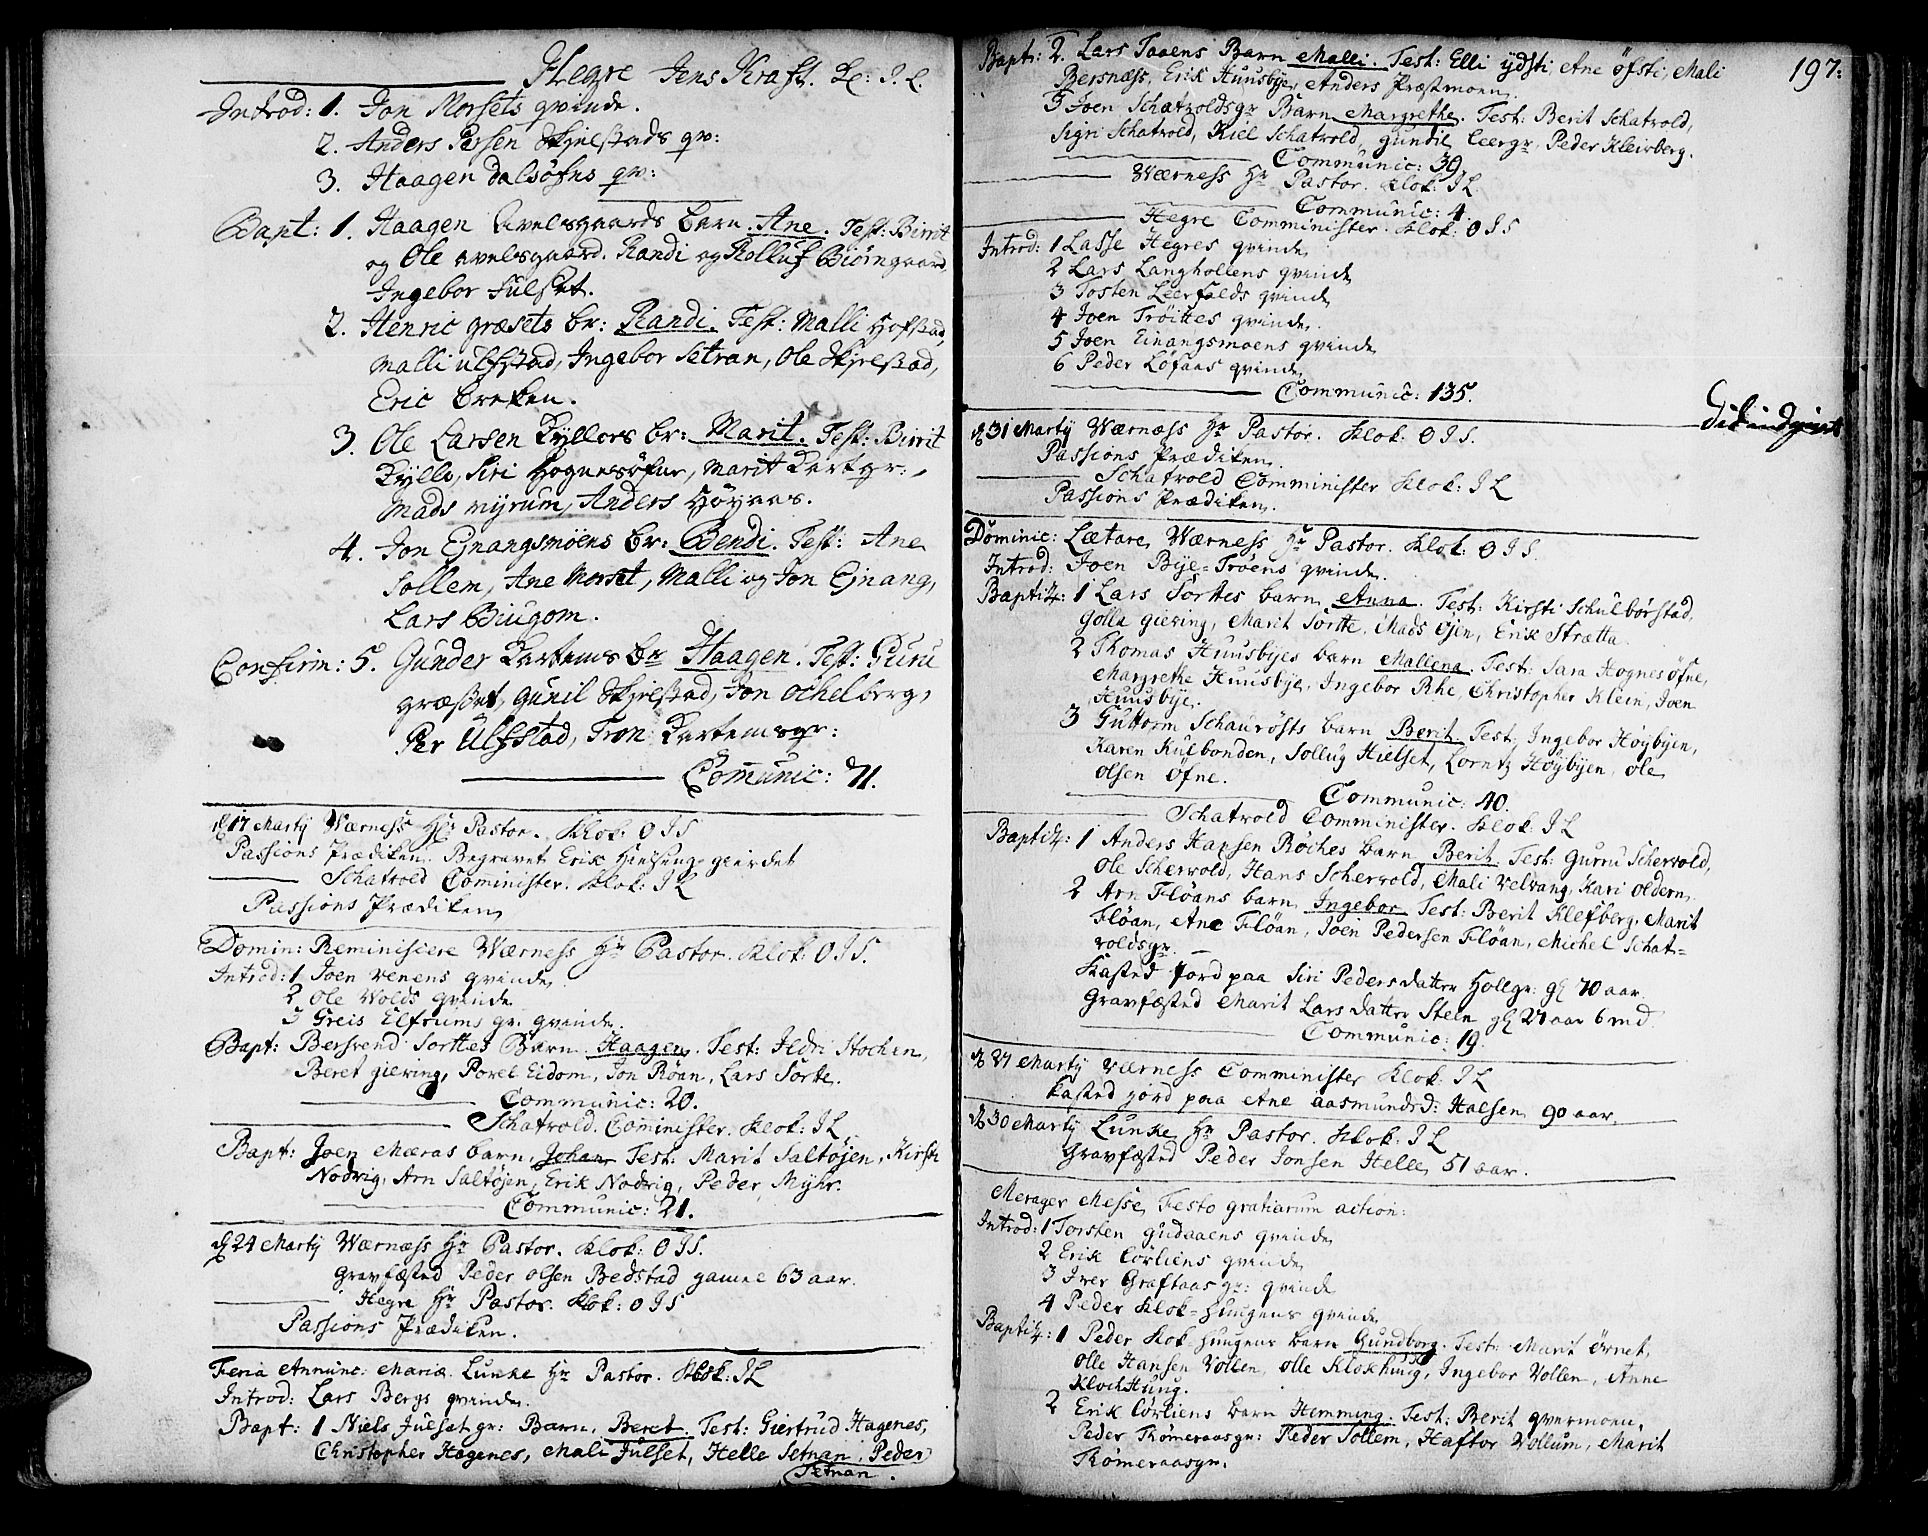 Hegre Jens Kraft. Kl: I. L.
Introd: 1. Jon Morsets qvinde.
2. Anders Persen Skjelstads qv:
3. Haagen Dalsøfns qv:
Bapt: 1. Haagen Avelsgaards barn. Ane. Test: Birrit
og Ole avelsgaard. Randi og Rolluf Biörngaard,
Ingebor Julset.
2. Henric græsets br: Randi. Test: Malli Hofstad,
Malli ulfstad, Ingebor Setran, Ole Skjelstad,
Eric breken.
3. Ole Larsen Kyllors br: Marit. Test: Birrit
Kyllo, Siri Hognesöfne, Marit Kartgr:,
Mads myrum, Anders Höyaas.
4. Jon Ejnangsmöens br: Bendi. Test: Ane
Sollem, Ane Morset, Malli og Jon Ejnang,
Lars Biugom.
Confirm: 5. Gunder Kartems br Haagen. Test: Guru
græset, gunil Skjelstad, Jon ochelberg,
Per Ulfstad, Tron Kartemsgr:
Com̄unic: 71.
17 Martij Wærness Hr Pastor. Klok: O I S
Passions Prædiken. Begravet Erik
Schatvold Cominister. Klok: I L
Passions Prædiken
Domin: Reminiscere Wærness Hr Pastor. Klok: O I S.
Introd: 1 Joen venens qvinde
2 Ole Wolds qvinde
3 Greis Elfrums gr: qvinde.
Bapt: Bersvend Sorttes Barn Haagen. Test: Ildri Stocken,
Beret giering, Povel Eidom, Jon Röan, Lars Sorte.
Communic: 20.
Schatvold. Cominister. Klok: I L.
Bapt: Joen Mæras barn, Johan Test: Marit Saltöjen, Kirsti
Nodvig, Arn Saltöjen, Erik Nodvig, Peder Myhr.
Communic: 21.
24 Martij Wærness Hr Pastor. Klok: O I S.
Gravfæsted Peder olsen Bedstad gamel 63 aar.
Hegre Hr Pastor. Klok: O I S
Passions Prædiken.
Feria Annunc: Mariæ. Lunke Hr Pastor. Klok: I L
Introd: Lars Bergs qvinde
Bapt: 1 Niels Julsetgr: Barn. Beret. Test: Giertrud Hagenes,
Christopher Hagenes, Mali Julset, Helle Setnan, Peder
Setnan.
197.
Bapt: 2. Lars Taaens Barn Malli. Test: Elli ydsti, Ane öfsti, Mali
Bersnæss, Erik Huusbye, Anders Præstmoen.
3 Joen Schatvoldsgr Barn Margrethe. Test: Berit Schatvold,
Sigri Schatvold, Kiel Schatvold, gundil Leergr, Peder Kleivberg.
Communic: 39
Wærness Hr Pastor. Klok: I L.
Communic: 4.
Hegre Comminister. Klok: O I S
Introd: 1 Lasse Hegres qvinde
2 Lars Langhollens qvinde
3 Tosten Leerfalds qvinde
4 Joen Tröittes qvinde
5 Joen Einangsmoens qvinde
6 Peder Löfaas qvinde
Communic: 135.
31 Martij Wærness Hr Pastor. Klok: O I S.
Passions Prædiken.
Schatvold Comminister Klok: I L
Passions Prædiken.
Dominic: Lætare, Wærness Hr Pastor. Klok: O I S.
Introd: Joen Bye-Tröens qvinde.
Baptiz: 1 Lars Sorttes barn Anna. Test: Kirsti Schulbörstad,
Golla giering, Marit Sortte, Mads Öjen, Erik Strætta.
2 Thomas Huusbyes barn Mallena. Test: Sara Hognesöfne,
Margrethe Huusbye, Ingebor Rhe, Christopher Klein, Joen
Huusbye.
3 Guttorm Schauröfsts barn Berit. Test: Ingebor Höybyen,
Karen Kulbonden, Sollug Hielset, Lorntz Höybyen, Ole
olsen öfne.
Communic: 40.
Schatvold Comminister. Klok: I L
Baptiz: 1 Anders Hansen Röches barn Berit. Test: Guru Schervold,
Ole Schervold, Hans Schervold, Mali Velvang, Kari oldern.
2 Arn Flöans barn Ingebor Test: Berit Klefberg, Marit
Flöan, Ane Flöan, Joen Pedersen Flöan, Michel Schat-
voldsgr.
Kasted jord paa Siri Pedersdatter Hollgr: gl 70 aar.
Gravfæsted Marit Larsdatter Steen gl 27 aar 6 md.
Communic: 19.
27 Martij Værness Comminister Klok: I L
Kasted jord paa Ane aasmundsd: Halsen 90 aar.
30 Martij Lunke Hr Pastor. Klok: I L
Gravfæsted Peder Jonsen Helle, 51 aar.
Merager Messe, Festo gratiarum action:
Introd: 1 Torsten gudaaens qvinde
2 Erik Cörliens qvinde
3 Iver Graftaasgr: qvinde
4 Peder Klok-Huugens qvinde
Baptiz: 1 Peder Klok huugens barn Gundborg. Test: Marit örnet,
Olle Hansen Vollen, Olle Klokhuug, Ingebor Vollen, Anne
KlochHuug.
2 Erik Cörliens barn Hemming. Test: Berit qvermoen,
Peder Tömeraasgr: Peder Sollem, Haftor Vollum, Marit
Tömeraasgr.